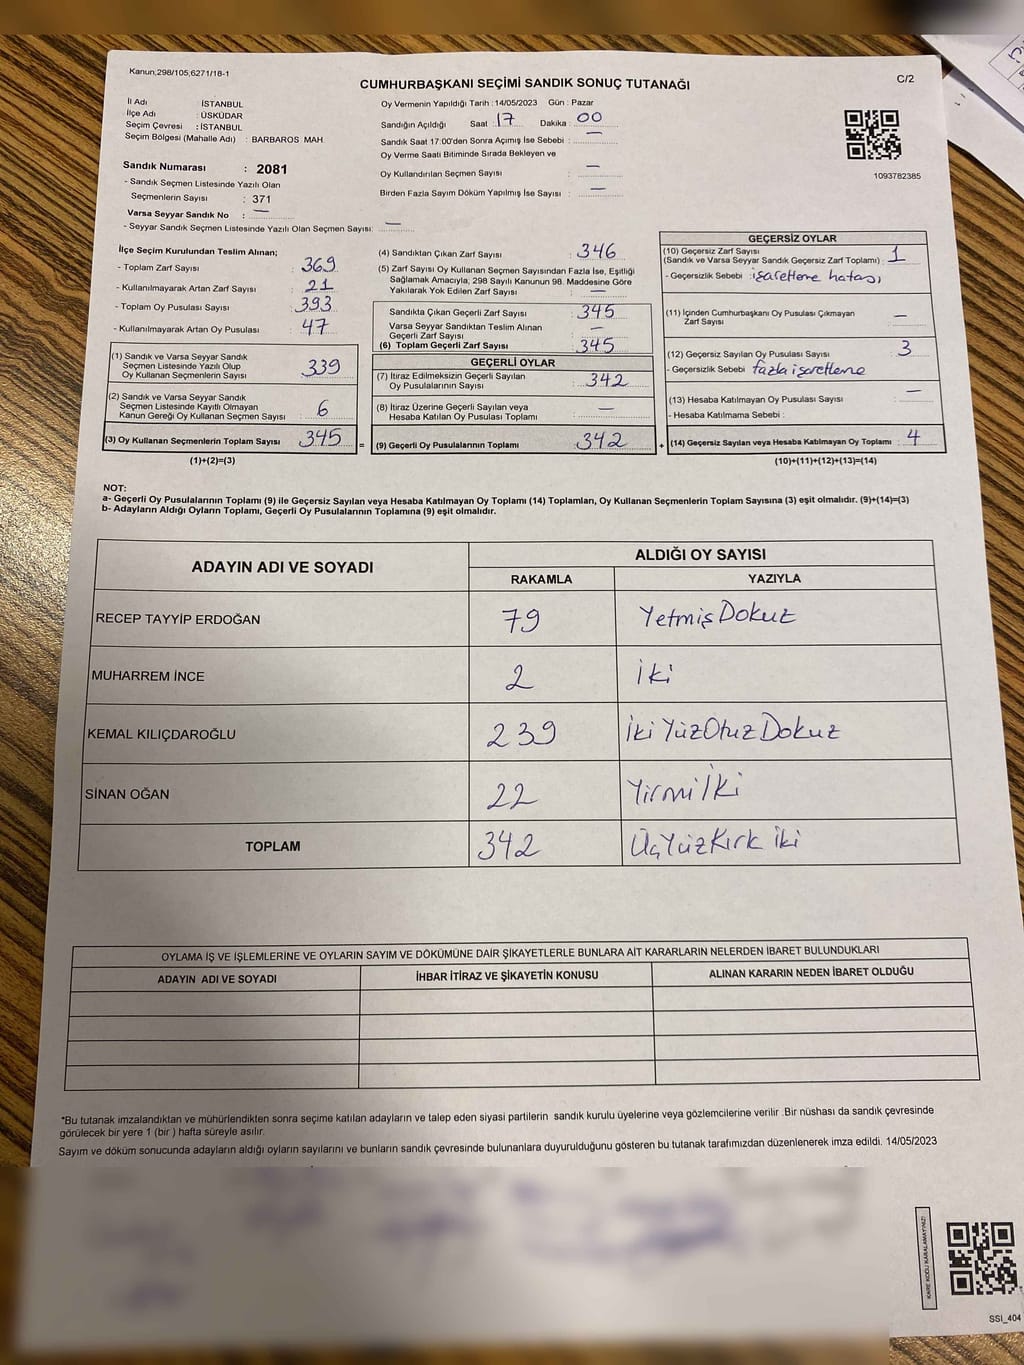 Kanun;298/105;6271/18-1
C/2
CUMHURBAŞKANI SEÇİMİ SANDIK SONUÇ TUTANAĞI
İl Adı : İSTANBUL
İlçe Adı : ÜSKÜDAR
Seçim Çevresi : İSTANBUL
Seçim Bölgesi (Mahalle Adı) : BARBAROS MAH.
Sandık Numarası : 2081
- Sandık Seçmen Listesinde Yazılı Olan
Seçmenlerin Sayısı : 371
Varsa Seyyar Sandık No : —
- Seyyar Sandık Seçmen Listesinde Yazılı Olan Seçmen Sayısı: —
Oy Vermenin Yapıldığı Tarih : 14/05/2023 Gün : Pazar
Sandığın Açıldığı Saat : 17 Dakika : 00
Sandık Saat 17:00'den Sonra Açımış İse Sebebi : —
Oy Verme Saati Bitiminde Sırada Bekleyen ve
Oy Kullandırılan Seçmen Sayısı : —
Birden Fazla Sayım Döküm Yapılmış İse Sayısı : —
1093782385
İlçe Seçim Kurulundan Teslim Alınan;
- Toplam Zarf Sayısı : 369
- Kullanılmayarak Artan Zarf Sayısı : 21
- Toplam Oy Pusulası Sayısı : 393
- Kullanılmayarak Artan Oy Pusulası : 47
(1) Sandık ve Varsa Seyyar Sandık
Seçmen Listesinde Yazılı Olup
Oy Kullanan Seçmenlerin Sayısı : 339
(2) Sandık ve Varsa Seyyar Sandık
Seçmen Listesinde Kayıtlı Olmayan
Kanun Gereği Oy Kullanan Seçmen Sayısı : 6
(3) Oy Kullanan Seçmenlerin Toplam Sayısı : 345
(1)+(2)=(3)
(4) Sandıktan Çıkan Zarf Sayısı : 346
(5) Zarf Sayısı Oy Kullanan Seçmen Sayısından Fazla İse, Eşitliği
Sağlamak Amacıyla; 298 Sayılı Kanunun 98. Maddesine Göre
Yakılarak Yok Edilen Zarf Sayısı : —
Sandıkta Çıkan Geçerli Zarf Sayısı : 345
Varsa Seyyar Sandıktan Teslim Alınan
Geçerli Zarf Sayısı : —
(6) Toplam Geçerli Zarf Sayısı : 345
GEÇERLİ OYLAR
(7) İtiraz Edilmeksizin Geçerli Sayılan
Oy Pusulalarının Sayısı : 342
(8) İtiraz Üzerine Geçerli Sayılan veya
Hesaba Katılan Oy Pusulası Toplamı : —
= (9) Geçerli Oy Pusulalarının Toplamı : 342
GEÇERSİZ OYLAR
(10) Geçersiz Zarf Sayısı
(Sandık ve Varsa Seyyar Sandık Geçersiz Zarf Toplamı) : 1
- Geçersizlik Sebebi : işaretleme hatası
(11) İçinden Cumhurbaşkanı Oy Pusulası Çıkmayan
Zarf Sayısı : —
(12) Geçersiz Sayılan Oy Pusulası Sayısı : 3
- Geçersizlik Sebebi : fazla işaretleme
(13) Hesaba Katılmayan Oy Pusulası Sayısı : —
- Hesaba Katılmama Sebebi :
+ (14) Geçersiz Sayılan veya Hesaba Katılmayan Oy Toplamı : 4
(10)+(11)+(12)+(13)=(14)
NOT:
a- Geçerli Oy Pusulalarının Toplamı (9) ile Geçersiz Sayılan veya Hesaba Katılmayan Oy Toplamı (14) Toplamları, Oy Kullanan Seçmenlerin Toplam Sayısına (3) eşit olmalıdır. (9)+(14)=(3)
b- Adayların Aldığı Oyların Toplamı, Geçerli Oy Pusulalarının Toplamına (9) eşit olmalıdır.
ADAYIN ADI VE SOYADI
ALDIĞI OY SAYISI
RAKAMLA YAZIYLA
RECEP TAYYİP ERDOĞAN 79 Yetmiş Dokuz
MUHARREM İNCE 2 İki
KEMAL KILIÇDAROĞLU 239 İki Yüz Otuz Dokuz
SİNAN OĞAN 22 Yirmi İki
TOPLAM 342 Üç Yüz Kırk İki
OYLAMA İŞ VE İŞLEMLERİNE VE OYLARIN SAYIM VE DÖKÜMÜNE DAİR ŞİKAYETLERLE BUNLARA AİT KARARLARIN NELERDEN İBARET BULUNDUKLARI
ADAYIN ADI VE SOYADI İHBAR İTİRAZ VE ŞİKAYETİN KONUSU ALINAN KARARIN NEDEN İBARET OLDUĞU
*Bu tutanak imzalandıktan ve mühürlendikten sonra seçime katılan adayların ve talep eden siyasi partilerin sandık kurulu üyelerine veya gözlemcilerine verilir .Bir nüshası da sandık çevresinde
görülecek bir yere 1 (bir ) hafta süreyle asılır.
Sayım ve döküm sonucunda adayların aldığı oyların sayılarını ve bunların sandık çevresinde bulunanlara duyurulduğunu gösteren bu tutanak tarafımızdan düzenlenerek imza edildi. 14/05/2023
KARE KODU KARALAMAYINIZ!
SSİ_404